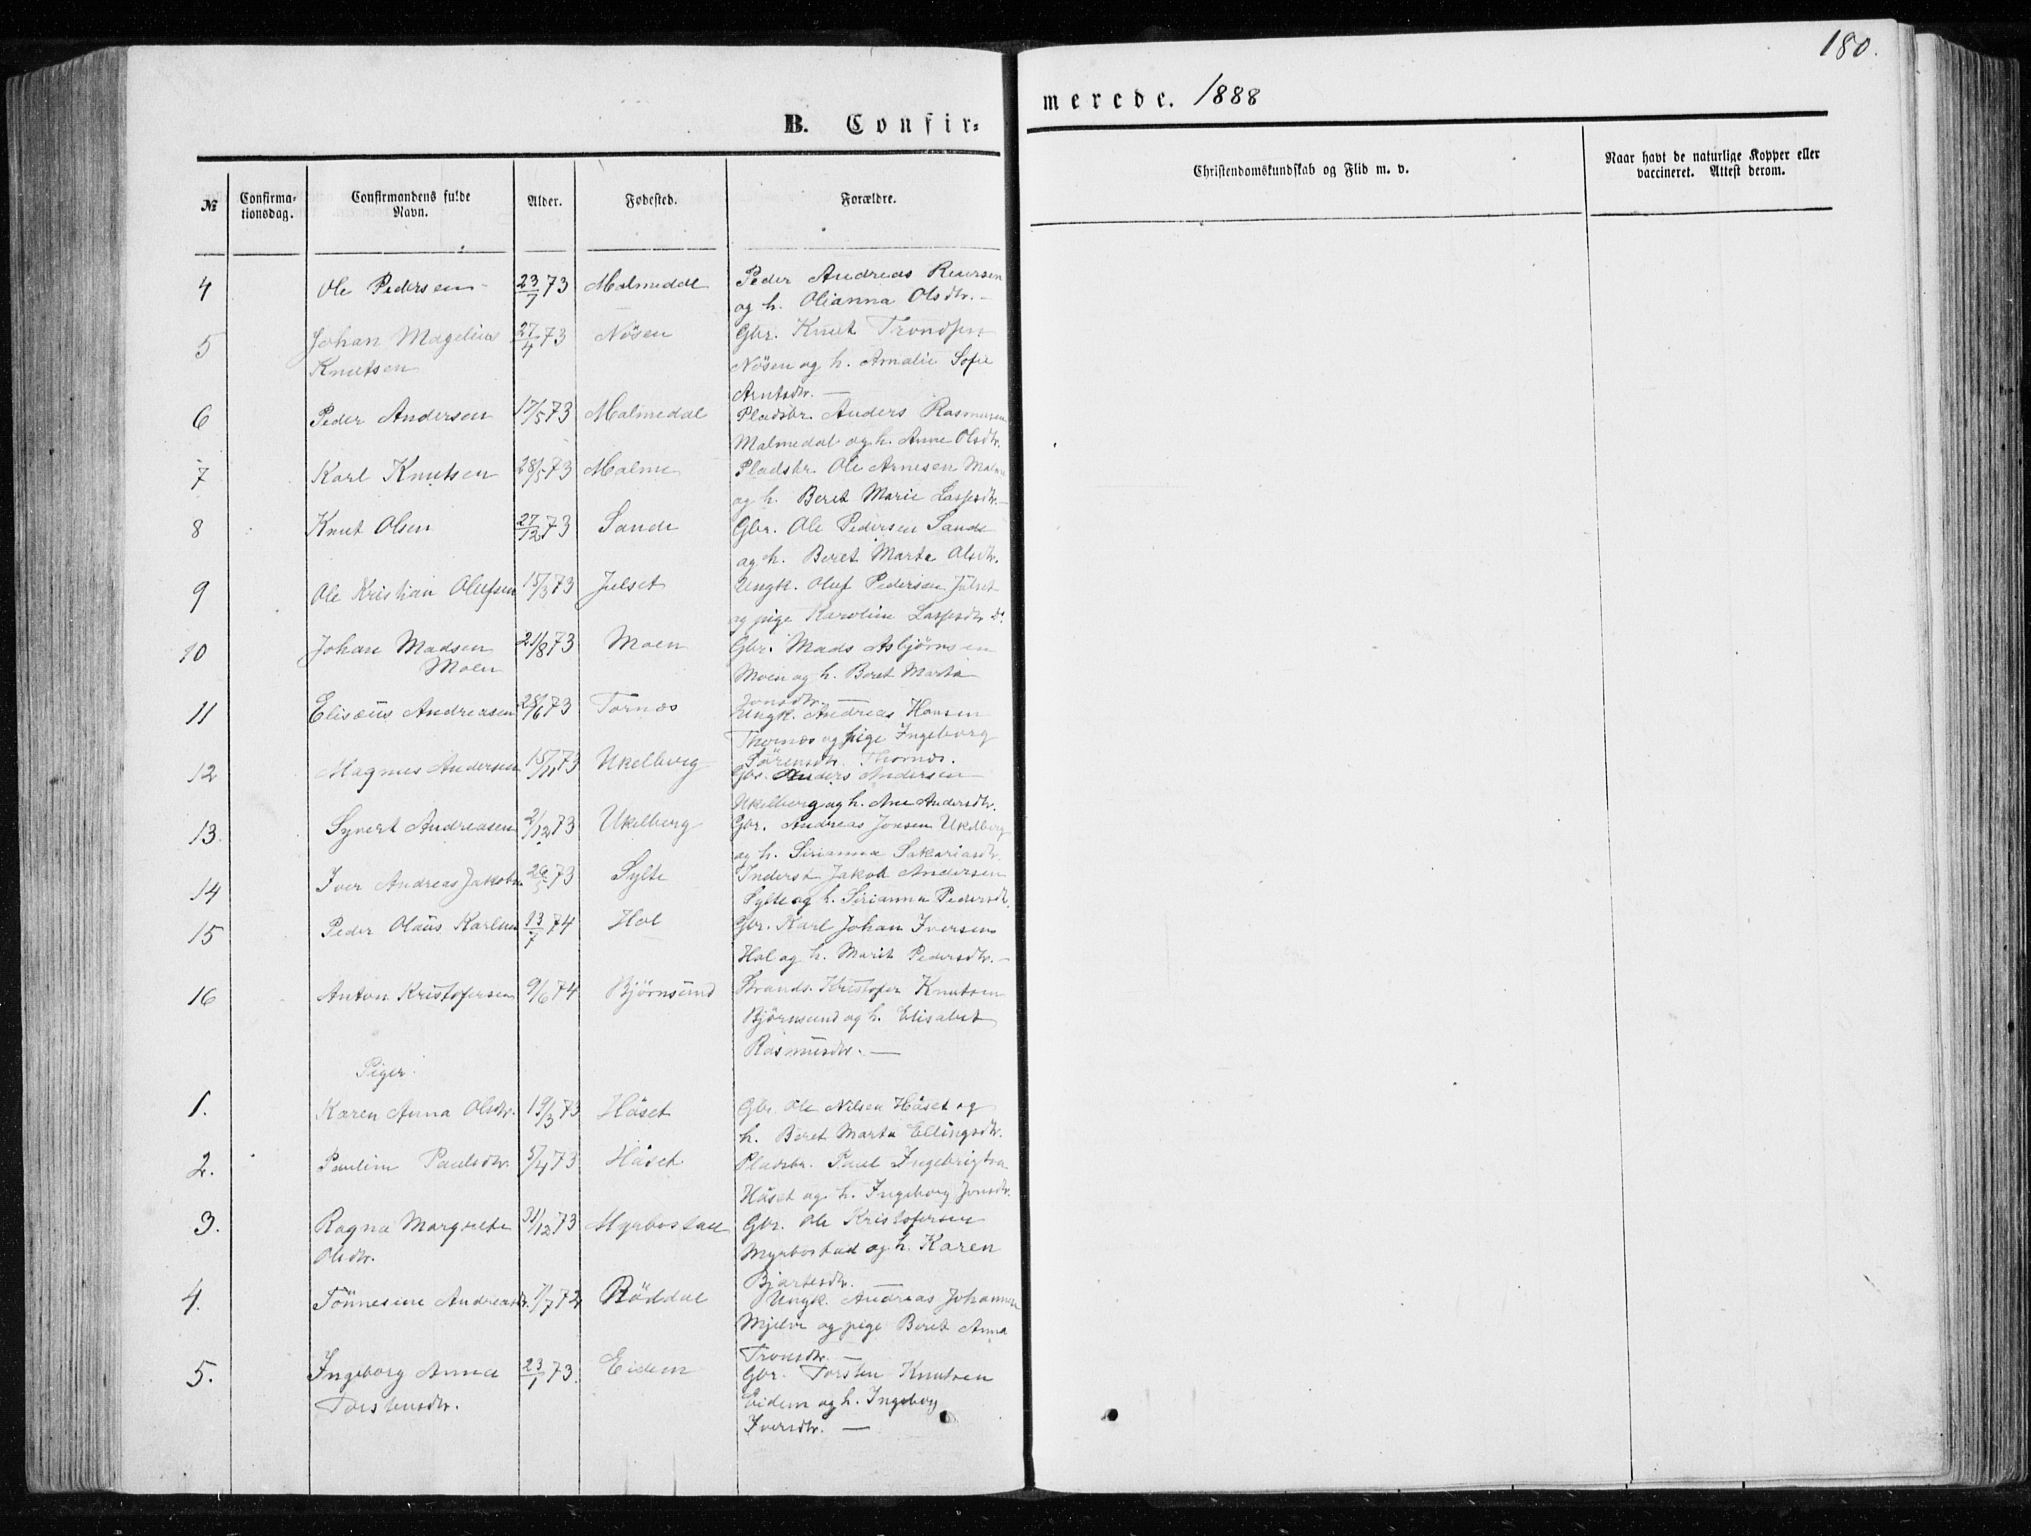 180.
B. Confir-
merede. 1888
№
Confirma-
tionsdag.
Confirmandens fulde
Navn.
Alder.
Fødested.
Forældre.
Christendomskundskab og Flid m. v.
Naar havt de naturlige Kopper eller
vaccineret. Attest derom.
4 Ole Pedersen 23/7 73 Malmedal Peder Andreas Reiersen
og h. Olianna Olsdtr. —
5 Johan Magelius 27/4 73 Nösen Gbr. Knut Trondsen
Knutsen Nösen og h. Amalie Sofie
Arntsdtr. —
6 Peder Andersen 17/5 73 Malmedal Pladsbr. Anders Rasmusen
Malmedal og h. Anne Olsdtr.
7 Karl Knutsen 28/5 73 Malme Pladsbr. Ole Arnesen Malme
og h. Beret Marie Lassesdtr. —
8 Knut Olsen 27/12 73 Sande Gbr. Ole Pedersen Sande
og h. Beret Marta Olsdtr.
9 Ole Kristian Olufsen 15/3 73 Julset Ungk. Oluf Pedersen Julset
og pige Karoline Lassesdtr do
10 Johan Madsen 21/8 73 Moen Gbr. Mads Asbjørnsen
Moen Moen og h. Beret Marta
Jonsdtr. —
11 Elisæus Andreasen 28/6 73 Tornæs Ungk. Andreas Hansen
Thornæs og pige Ingeborg
Sörensdtr. Thornæs.
12 Magnus Andersen 15/11 73 Ukelberg Gbr. Anders Andersen
Ukelberg og h. Ane Andersdtr.
13. Syvert Andreasen 2/12 73 Ukelberg Gbr. Andreas Jonsen Ukelberg
og h. Sirianna Sakariasdtr.
14 Iver Andreas Jakobsn 26/5 73 Sylte Inderst Jakob Andersen
Sylte og h. Sirianna Pedersdtr.
15 Peder Olaus Karlsen 13/7 74 Hol Gbr. Karl Johan Iversen
Hol og h. Marit Pedersdtr. —
16 Anton Kristofersen 9/6 74 Bjørnsund Strands. Kristofer Knutsen
Bjørnsund og h. Elisabet
Rasmusdtr. —
Piger.
1. Karen Anna Olsdtr. 19/3 73 Håset Gbr. Ole Nilsen Håset og
h. Beret Marta Ellingsdtr.
2. Pauline Paulsdtr. 5/4 73 Håset Pladsbr. Paul Ingebrigtsn
Håset og h. Ingeborg Jonsdtr.
3. Ragna Margrete 31/12 73 Myrbostad Gbr. Ole Kristofersen
Olsdtr. Myrbostad og h. Karen
Bjartesdtr.
4. Tönnesine Andreasdtr. 7/7 72 Röddal Ungk. Andreas Johannsen
Mjelve og pige Beret Anna
Tronsdtr. —
5. Ingeborg Anna 23/1 73. Eidem Gbr. Torsten Knutsen
Torstensdtr. Eidem og h. Ingeborg
Iversdtr. —